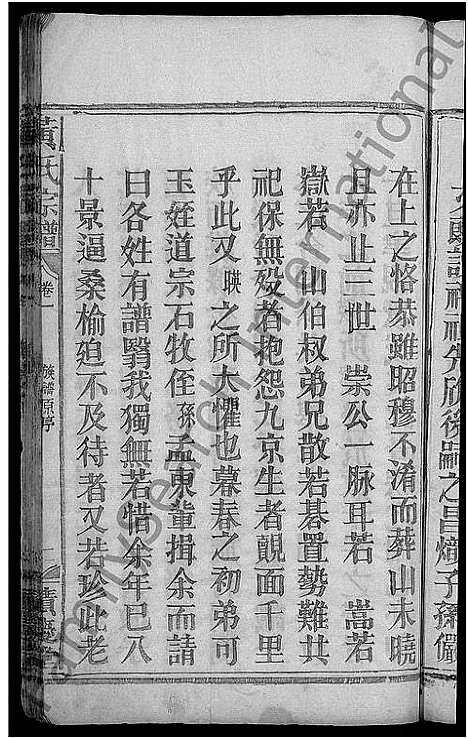 在上之恪恭雖昭穆不淆而葬山未曉
且亦止三世 崇公一脉耳若 嵩若
嶽若 山伯叔弟兄散若碁置勢難共
祀保無歿者抱怨九京生者靦面千里
乎此又暎之所大懼也暮春之初弟可
玉姪道宗石牧侄孫孟東輩揖余而請
曰各姓有譜翳我獨無若惜余年已八
十景逼桑榆廹不及待者又若珍此老
黃氏宗譜
卷一
族譜原序
familysearch International